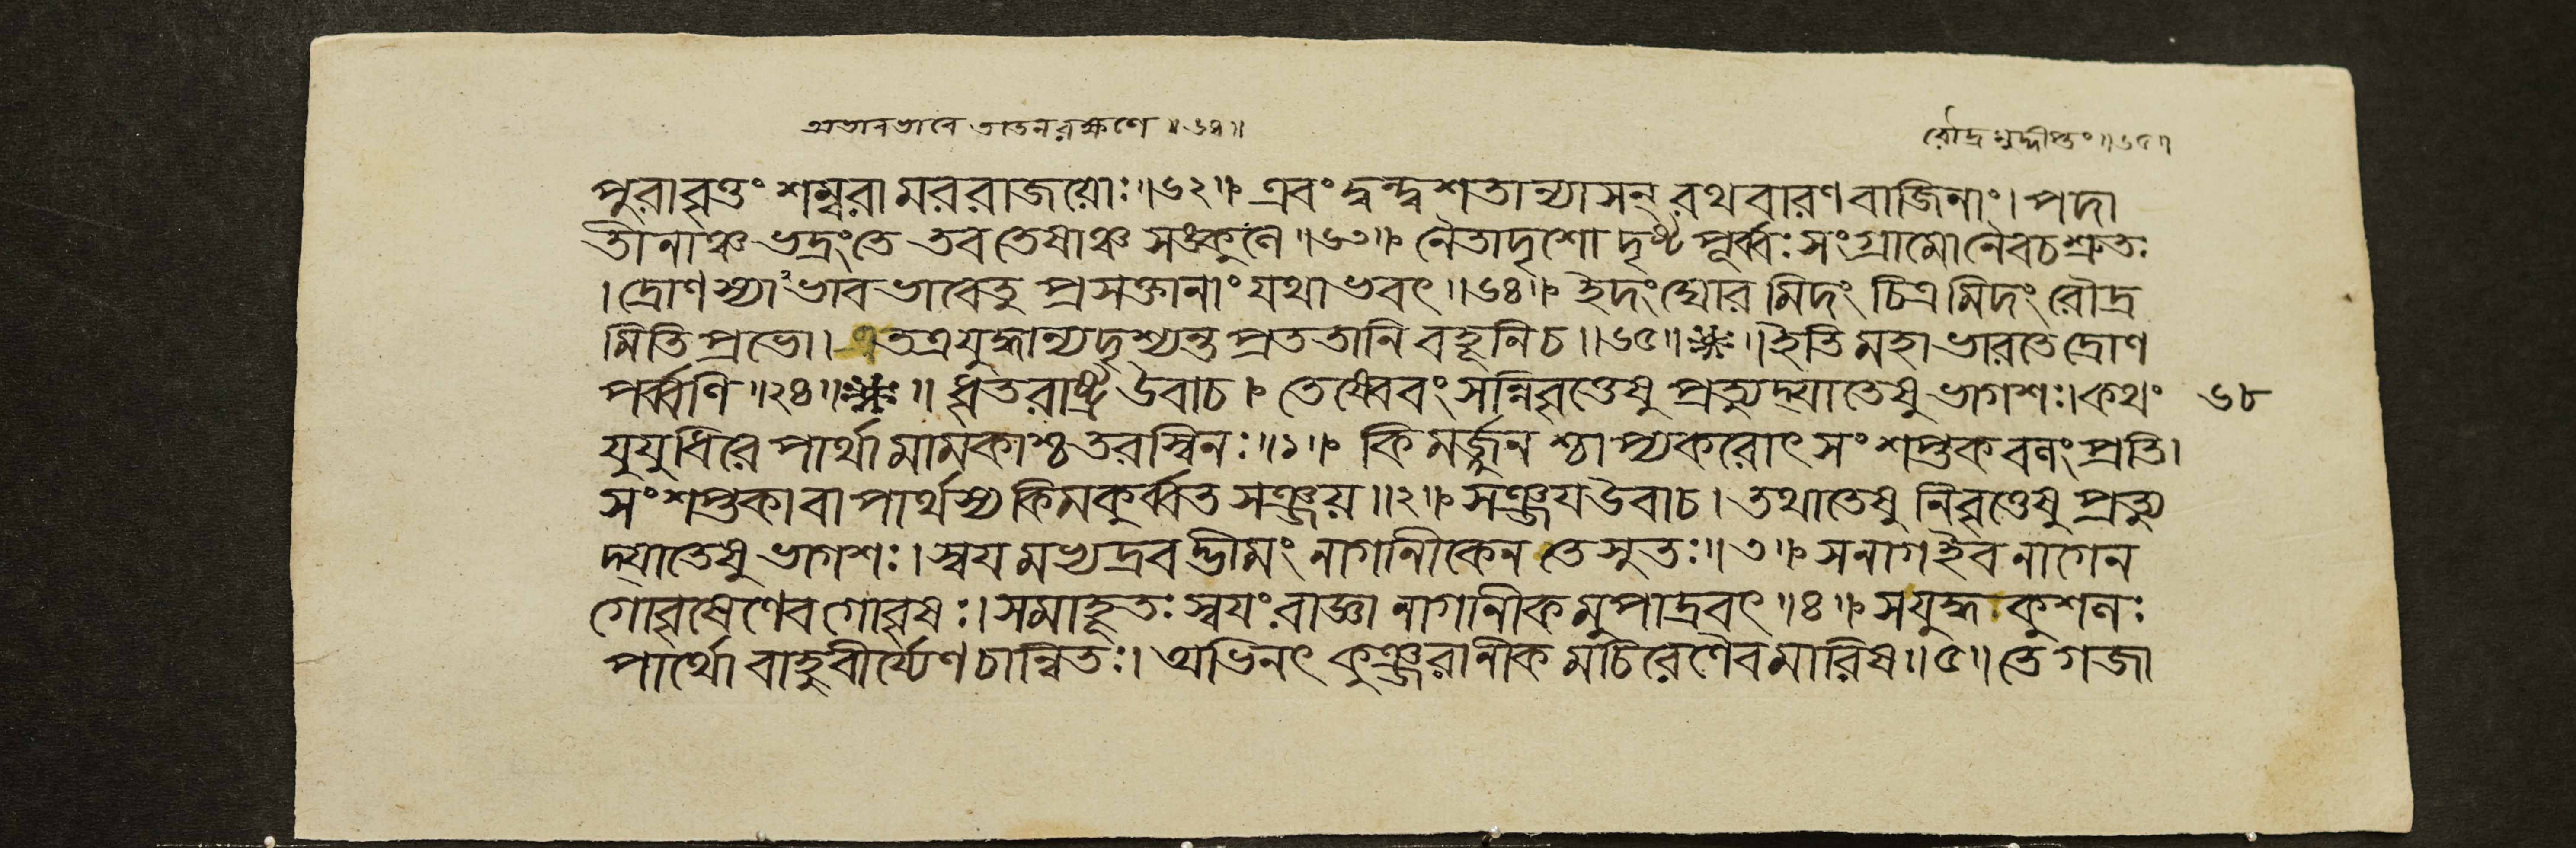 অভাবভাবে তাতনরক্ষণে ॥৬৪॥
রৌদ্রমুদ্দীপ্তং॥৬৫॥
পুরাবৃত্তং শম্বরামররাজয়োঃ॥৬২॥ এবং দ্বন্দ্বশতান্যাসন্ রথবারণবাজিনাং। পদা
তীনাঞ্চ ভদ্রংতে তব তেষাঞ্চ সঙ্কুলে ॥৬৩॥ নৈতাদৃশো দৃষ্টপূর্ব্বঃ সংগ্রামোনৈবচশ্রুতঃ
।দ্রোণস্যাভাবভাবেতু প্রসক্তানাং যথাভবৎ ॥৬৪॥ ইদংঘোরমিদং চিত্রমিদং রৌদ্র
মিতি প্রভো। তত্রযুদ্ধান্যদৃশ্যন্ত প্রততানি বহূনিচ॥৬৫॥ ॥ইতি মহাভারতে দ্রোণ
পর্ব্বণি ॥২৪॥ ॥ ধৃতরাষ্ট্র উবাচ। তেষ্বেবং সন্নিবৃত্তেষু প্রত্যুদ্যাতেষু ভাগশঃ।কথং ৬৮
যুযুধিরে পার্থা মামকাশ্চ তরস্বিনঃ॥১॥ কিমর্জ্জুনশ্চাপ্যকরোৎ সংশপ্তকবলং প্রতি।
সংশপ্তকা বা পার্থস্য কিমকুর্ব্বত সঞ্জয়॥২॥ সঞ্জয় উবাচ। তথা তেষু নিবৃত্তেষু প্রত্যু
দ্যাতেষু ভাগশঃ। স্বয়মভ্যদ্রবদ্ভীমং নাগানীকেন তে সুতঃ॥৩॥ সনাগইব নাগেন
গোবৃষেণেব গোবৃষঃ। সমাহূতঃ স্বয়ং রাজ্ঞা নাগানীকমুপাদ্রবৎ॥৪॥ সযুদ্ধকুশলঃ
পার্থো বাহুবীর্য্যেণ চান্বিতঃ। অভিনৎ কুঞ্জরানীকমচিরেণৈব মারিষ॥৫॥ তে গজা